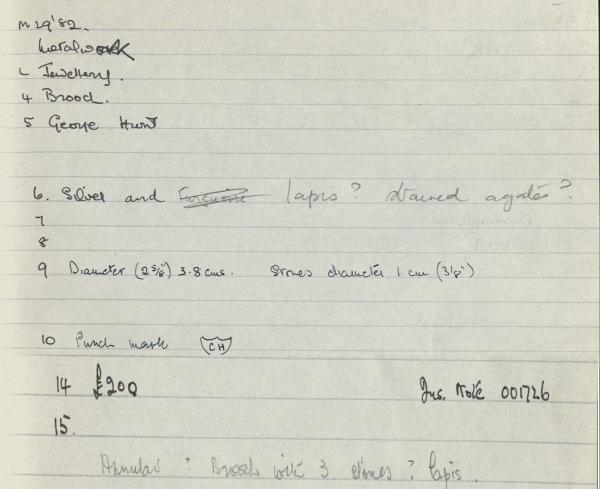 M29'82.
Metalwork
L Jewellery.
4 Brooch.
5 George Hunt
6. Silver and Turquoise lapis? stained agate?
7
8
9 Diameter (2 5/8") 3.8 cms. Stones diameter 1 cm (3/8")
10 Punch mark CH
14 £200 Ins. Note 001726
15.
Annular ? Brooch with 3 stones ? lapis.